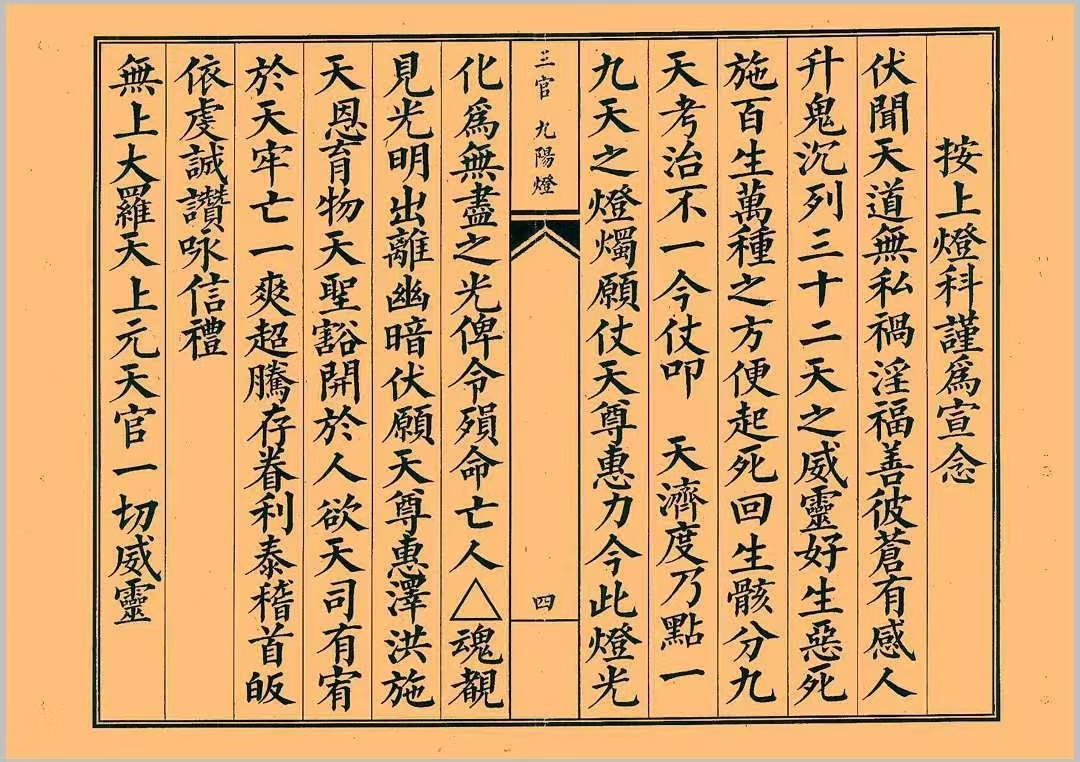 按上燈科謹爲宣念
伏聞天道無私禍淫福善彼蒼有感人
升鬼沉列三十二天之威靈好生惡死
施百生萬種之方便起死回生骸分九
天考治不一今仗叩　天濟度乃點一
九天之燈燭願仗天尊惠力今此燈光
三官 九陽燈
四
化爲無盡之光俾令殞命亡人△魂覩
見光明出離幽暗伏願天尊惠澤洪施
天恩育物天聖豁開於人欲天司有宥
於天牢亡一爽超騰存眷利泰稽首皈
依虔誠讚咏信禮
無上大羅天上元天官一切威靈